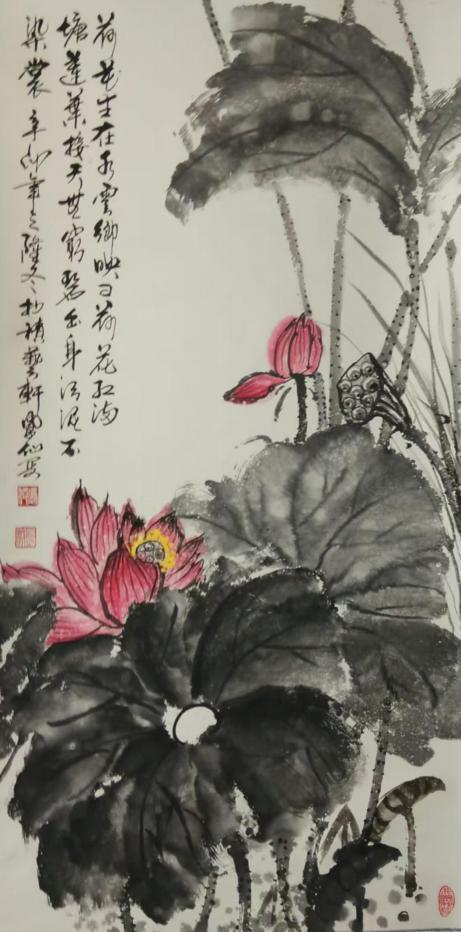 荷花生在水云乡映日荷花红满
塘莲叶接天无穷碧出身淤泥不
染裳辛卯年之隆冬於积艺轩凤仙写